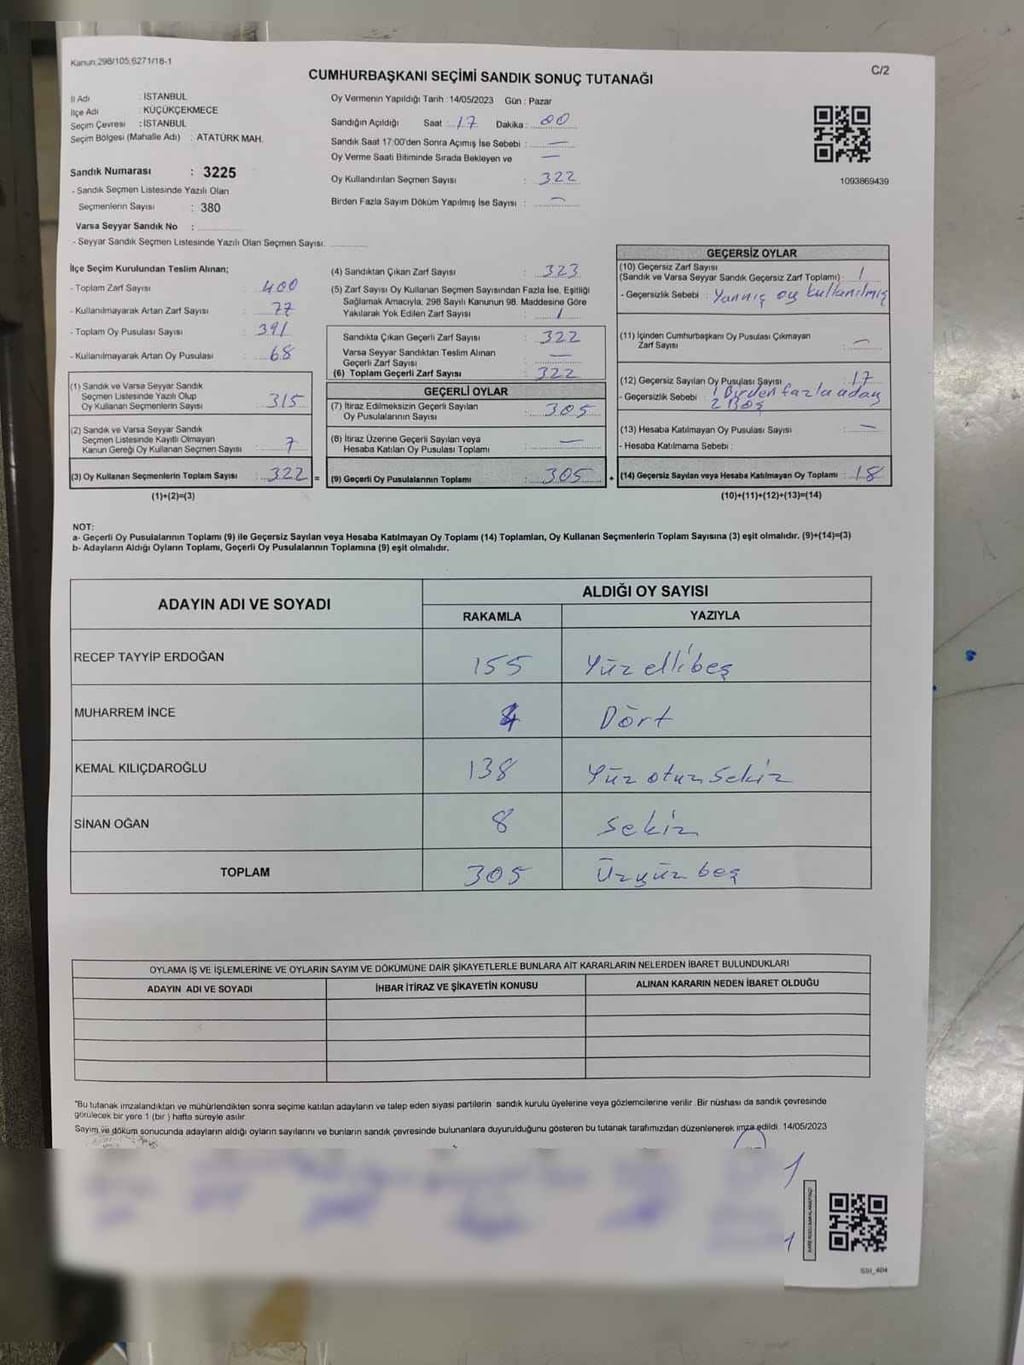 Kanun:298/105,6271/18-1
CUMHURBAŞKANI SEÇİMİ SANDIK SONUÇ TUTANAĞI
C/2
İl Adı : İSTANBUL
İlçe Adı : KÜÇÜKÇEKMECE
Seçim Çevresi : İSTANBUL
Seçim Bölgesi (Mahalle Adı) : ATATÜRK MAH.
Sandık Numarası : 3225
- Sandık Seçmen Listesinde Yazılı Olan
Seçmenlerin Sayısı : 380
Varsa Seyyar Sandık No :
- Seyyar Sandık Seçmen Listesinde Yazılı Olan Seçmen Sayısı:
Oy Vermenin Yapıldığı Tarih : 14/05/2023 Gün : Pazar
Sandığın Açıldığı Saat : 17 Dakika : 00
Sandık Saat 17:00'den Sonra Açımış İse Sebebi : —
Oy Verme Saati Bitiminde Sırada Bekleyen ve —
Oy Kullandırılan Seçmen Sayısı : 322
Birden Fazla Sayım Döküm Yapılmış İse Sayısı : —
1093869439
İlçe Seçim Kurulundan Teslim Alınan;
- Toplam Zarf Sayısı : 400
- Kullanılmayarak Artan Zarf Sayısı : 77
- Toplam Oy Pusulası Sayısı : 391
- Kullanılmayarak Artan Oy Pusulası : 68
(1) Sandık ve Varsa Seyyar Sandık
Seçmen Listesinde Yazılı Olup
Oy Kullanan Seçmenlerin Sayısı : 315
(2) Sandık ve Varsa Seyyar Sandık
Seçmen Listesinde Kayıtlı Olmayan
Kanun Gereği Oy Kullanan Seçmen Sayısı : 7
(3) Oy Kullanan Seçmenlerin Toplam Sayısı : 322 =
(1)+(2)=(3)
(4) Sandıktan Çıkan Zarf Sayısı : 323
(5) Zarf Sayısı Oy Kullanan Seçmen Sayısından Fazla İse, Eşitliği
Sağlamak Amacıyla, 298 Sayılı Kanunun 98. Maddesine Göre
Yakılarak Yok Edilen Zarf Sayısı : 1
Sandıkta Çıkan Geçerli Zarf Sayısı : 322
Varsa Seyyar Sandıktan Teslim Alınan
Geçerli Zarf Sayısı : —
(6) Toplam Geçerli Zarf Sayısı : 322
GEÇERLİ OYLAR
(7) İtiraz Edilmeksizin Geçerli Sayılan
Oy Pusulalarının Sayısı : 305
(8) İtiraz Üzerine Geçerli Sayılan veya
Hesaba Katılan Oy Pusulası Toplamı : —
(9) Geçerli Oy Pusulalarının Toplamı : 305 +
GEÇERSİZ OYLAR
(10) Geçersiz Zarf Sayısı
(Sandık ve Varsa Seyyar Sandık Geçersiz Zarf Toplamı) : 1
- Geçersizlik Sebebi : Yannış oy kullanılmış
(11) İçinden Cumhurbaşkanı Oy Pusulası Çıkmayan
Zarf Sayısı : —
(12) Geçersiz Sayılan Oy Pusulası Sayısı : 17
- Geçersizlik Sebebi : 1 Birden fazla aday
2 Boş
(13) Hesaba Katılmayan Oy Pusulası Sayısı : —
- Hesaba Katılmama Sebebi :
(14) Geçersiz Sayılan veya Hesaba Katılmayan Oy Toplamı : 18
(10)+(11)+(12)+(13)=(14)
NOT:
a- Geçerli Oy Pusulalarının Toplamı (9) ile Geçersiz Sayılan veya Hesaba Katılmayan Oy Toplamı (14) Toplamları, Oy Kullanan Seçmenlerin Toplam Sayısına (3) eşit olmalıdır. (9)+(14)=(3)
b- Adayların Aldığı Oyların Toplamı, Geçerli Oy Pusulalarının Toplamına (9) eşit olmalıdır.
ADAYIN ADI VE SOYADI
ALDIĞI OY SAYISI
RAKAMLA YAZIYLA
RECEP TAYYİP ERDOĞAN 155 Yüz ellibeş
MUHARREM İNCE 4 Dört
KEMAL KILIÇDAROĞLU 138 Yüz otuz sekiz
SİNAN OĞAN 8 Sekiz
TOPLAM 305 Üzyüz beş
OYLAMA İŞ VE İŞLEMLERİNE VE OYLARIN SAYIM VE DÖKÜMÜNE DAİR ŞİKAYETLERLE BUNLARA AİT KARARLARIN NELERDEN İBARET BULUNDUKLARI
ADAYIN ADI VE SOYADI İHBAR İTİRAZ VE ŞİKAYETİN KONUSU ALINAN KARARIN NEDEN İBARET OLDUĞU
"Bu tutanak imzalandıktan ve mühürlendikten sonra seçime katılan adayların ve talep eden siyasi partilerin sandık kurulu üyelerine veya gözlemcilerine verilir. Bir nüshası da sandık çevresinde
görülecek bir yere 1 (bir ) hafta süreyle asılır.
Sayım ve döküm sonucunda adayların aldığı oyların sayılarını ve bunların sandık çevresinde bulunanlara duyurulduğunu gösteren bu tutanak tarafımızdan düzenlenerek imza edildi. 14/05/2023